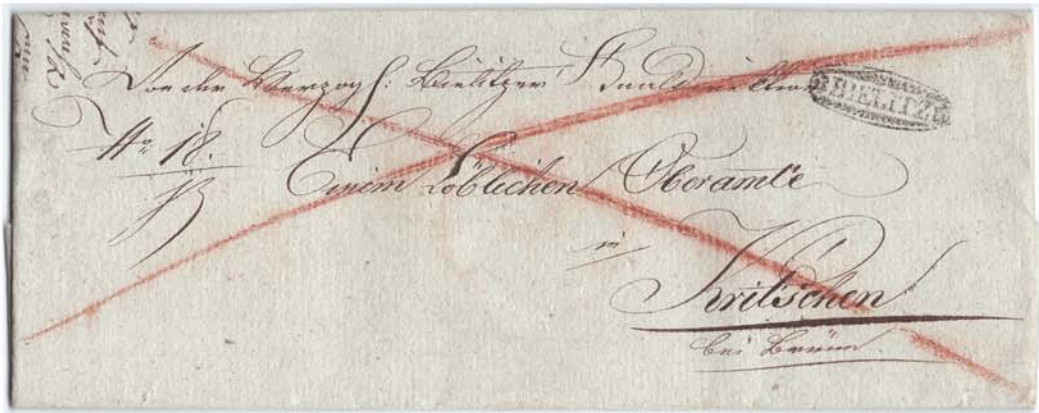 Von der Herzogl: Bielitzer
BIELITZ
No 18.
Einem Löblichen Oberamte
in
Kritschen
bei Brünn.